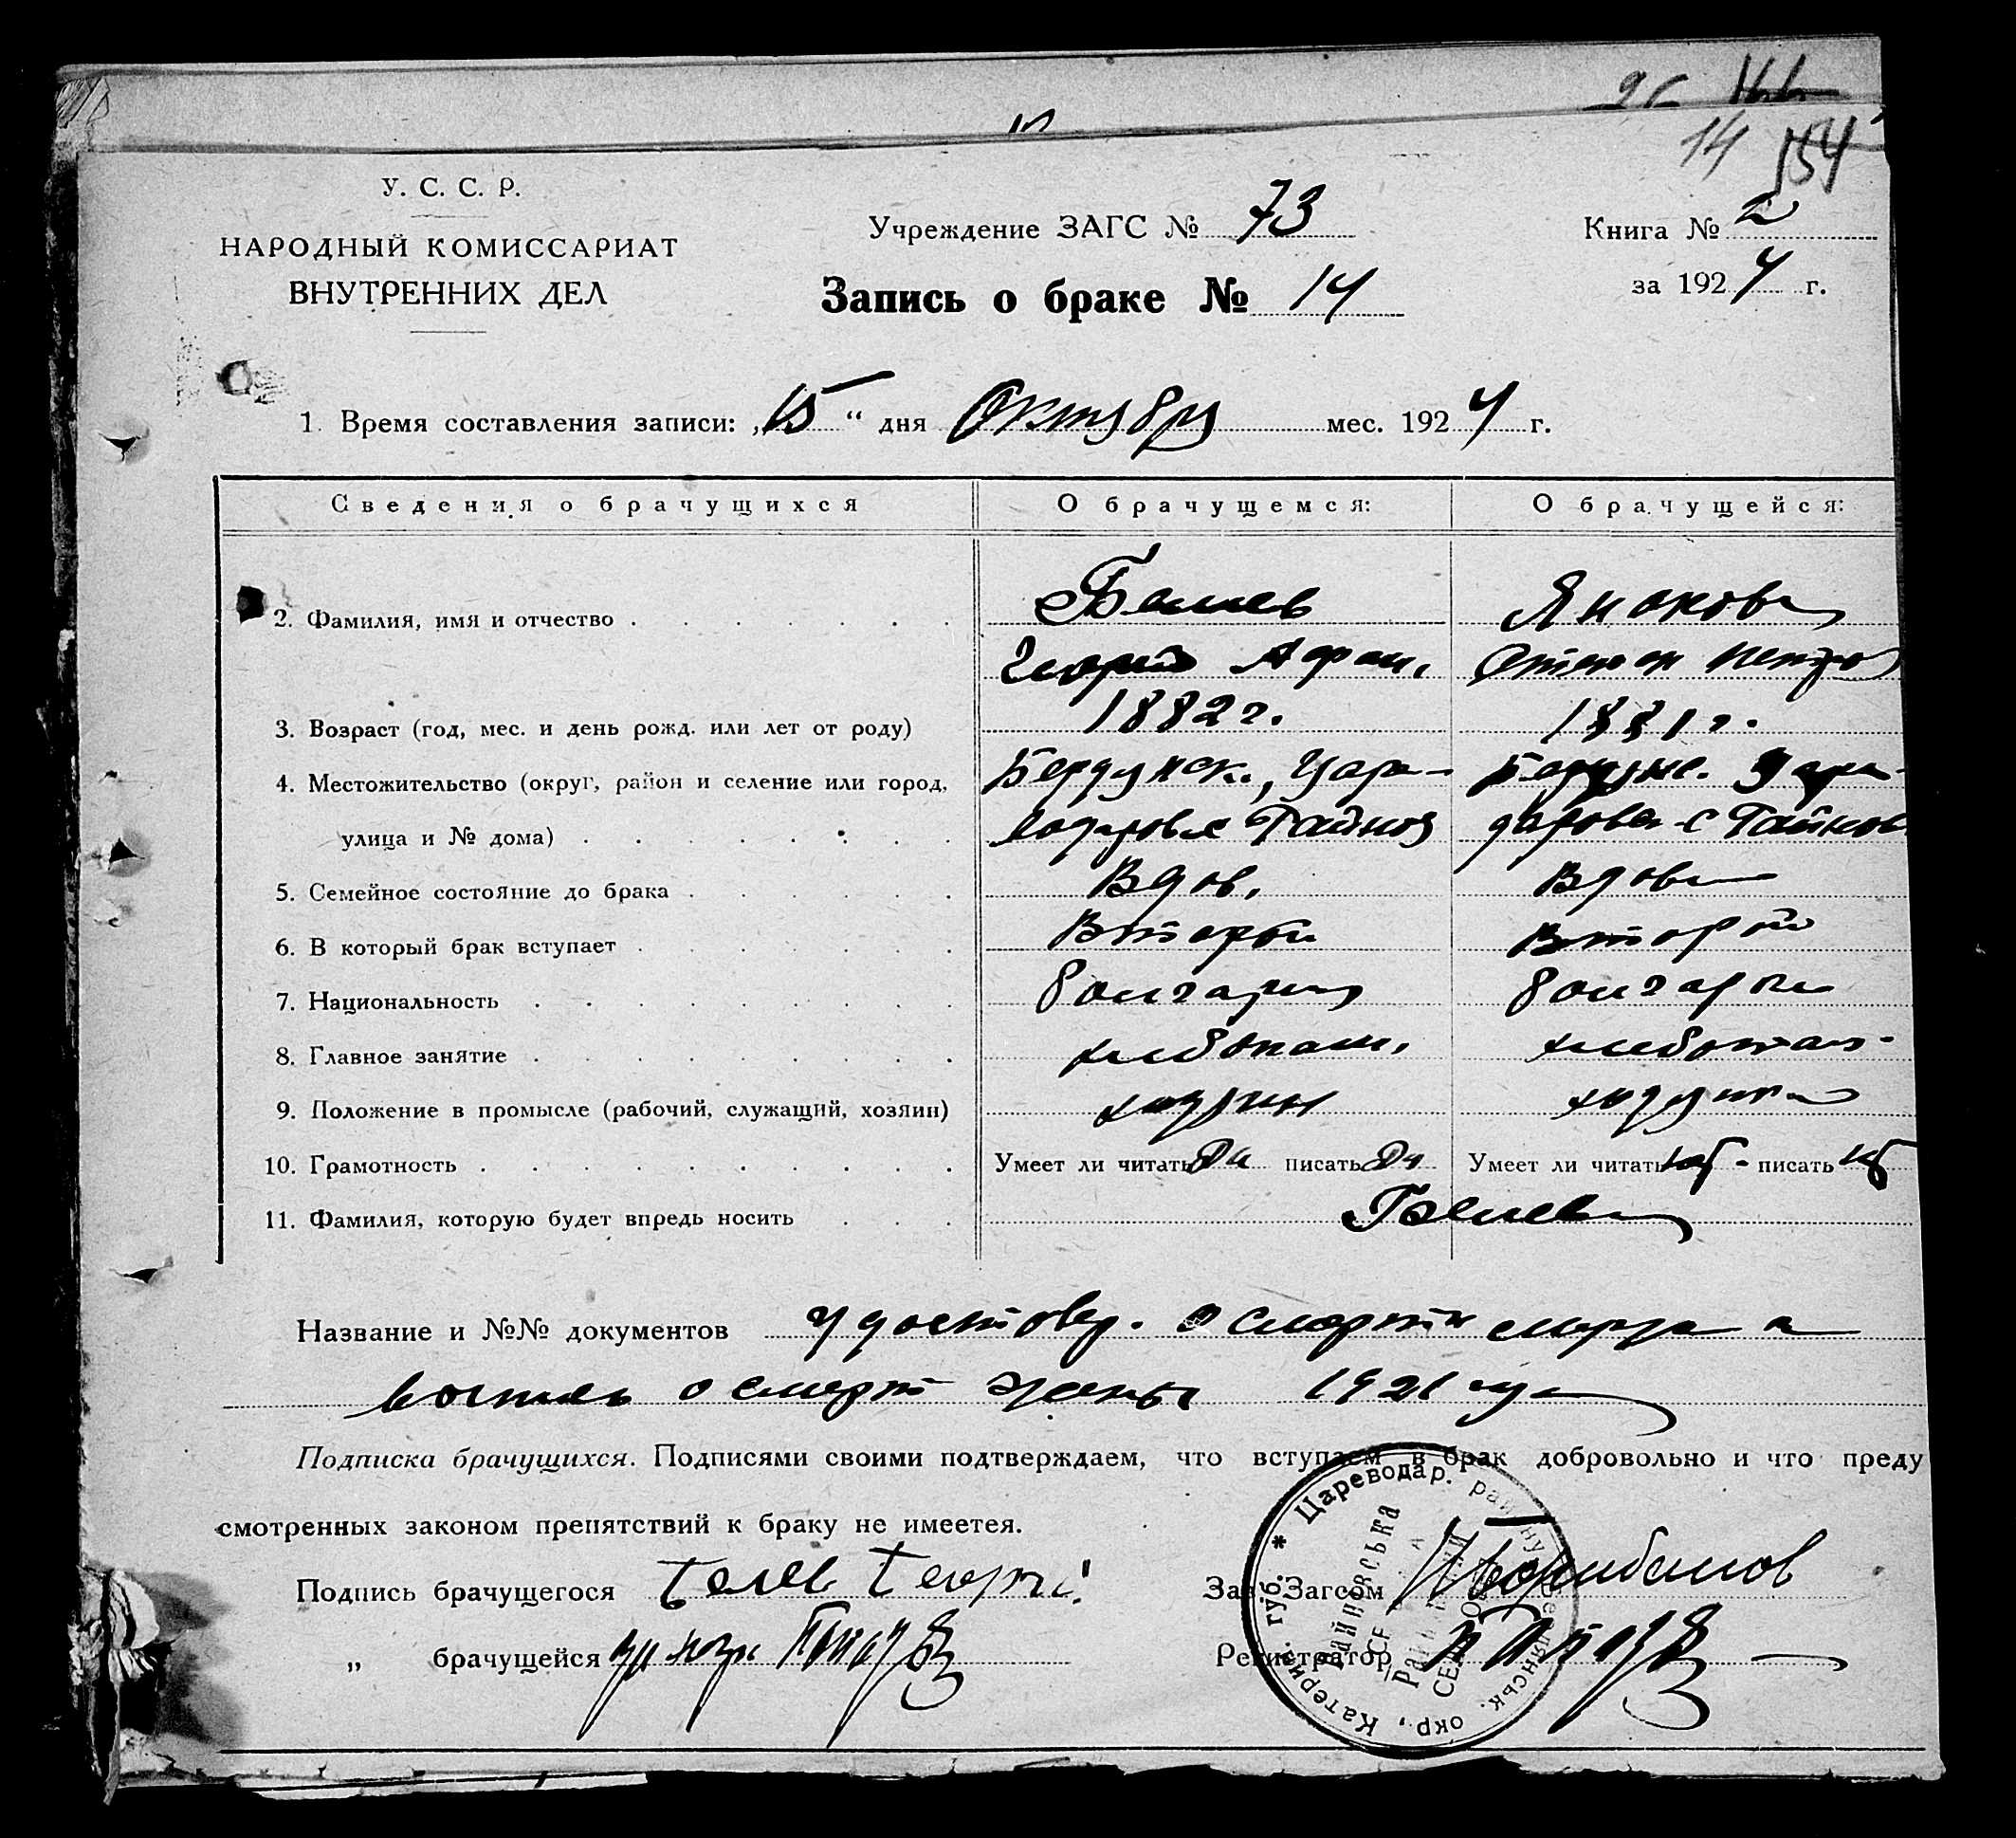 14 154
У. С. С. Р.
НАРОДНЫЙ КОМИССАРИАТ
ВНУТРЕННИХ ДЕЛ
Учреждение ЗАГС № 73
Книга № 2
за 1924 г.
Запись о браке № 14
1. Время составления записи: „15“ дня Октября мес. 1924 г.
Сведения о брачущихся О брачущемся: О брачущейся:
2. Фамилия, имя и отчество Белев Янакова
Георгий Афан. Петров
3. Возраст (год, мес. и день рожд. или лет от роду) 1882 г. 1881 г.
4. Местожительство (округ, район и селение или город, Бердянск., Царе-
улица и № дома)
5. Семейное состояние до брака Вдов. Вдова
6. В который брак вступает Второй Второй
7. Национальность болгарин болгарка
8. Главное занятие хлебопаш. хлебопаш.
9. Положение в промысле (рабочий, служащий, хозяин) хозяин хозяйка
10. Грамотность Умеет ли читать да писать да Умеет ли читать нет. писать нет
11. Фамилия, которую будет впредь носить Белев
Название и №№ документов удостовер. о смерти мужа и
о смерти жены 1921 года
Подписка брачущихся. Подписями своими подтверждаем, что вступаем в брак добровольно и что преду
смотренных законом препятствий к браку не имеетея.
Подпись брачущегося Белев Георгий Зав. Загсом
„ брачущейся Регистратор
* Цареводар. району Бердянськ. окр., Катерин. губ.
Райновська